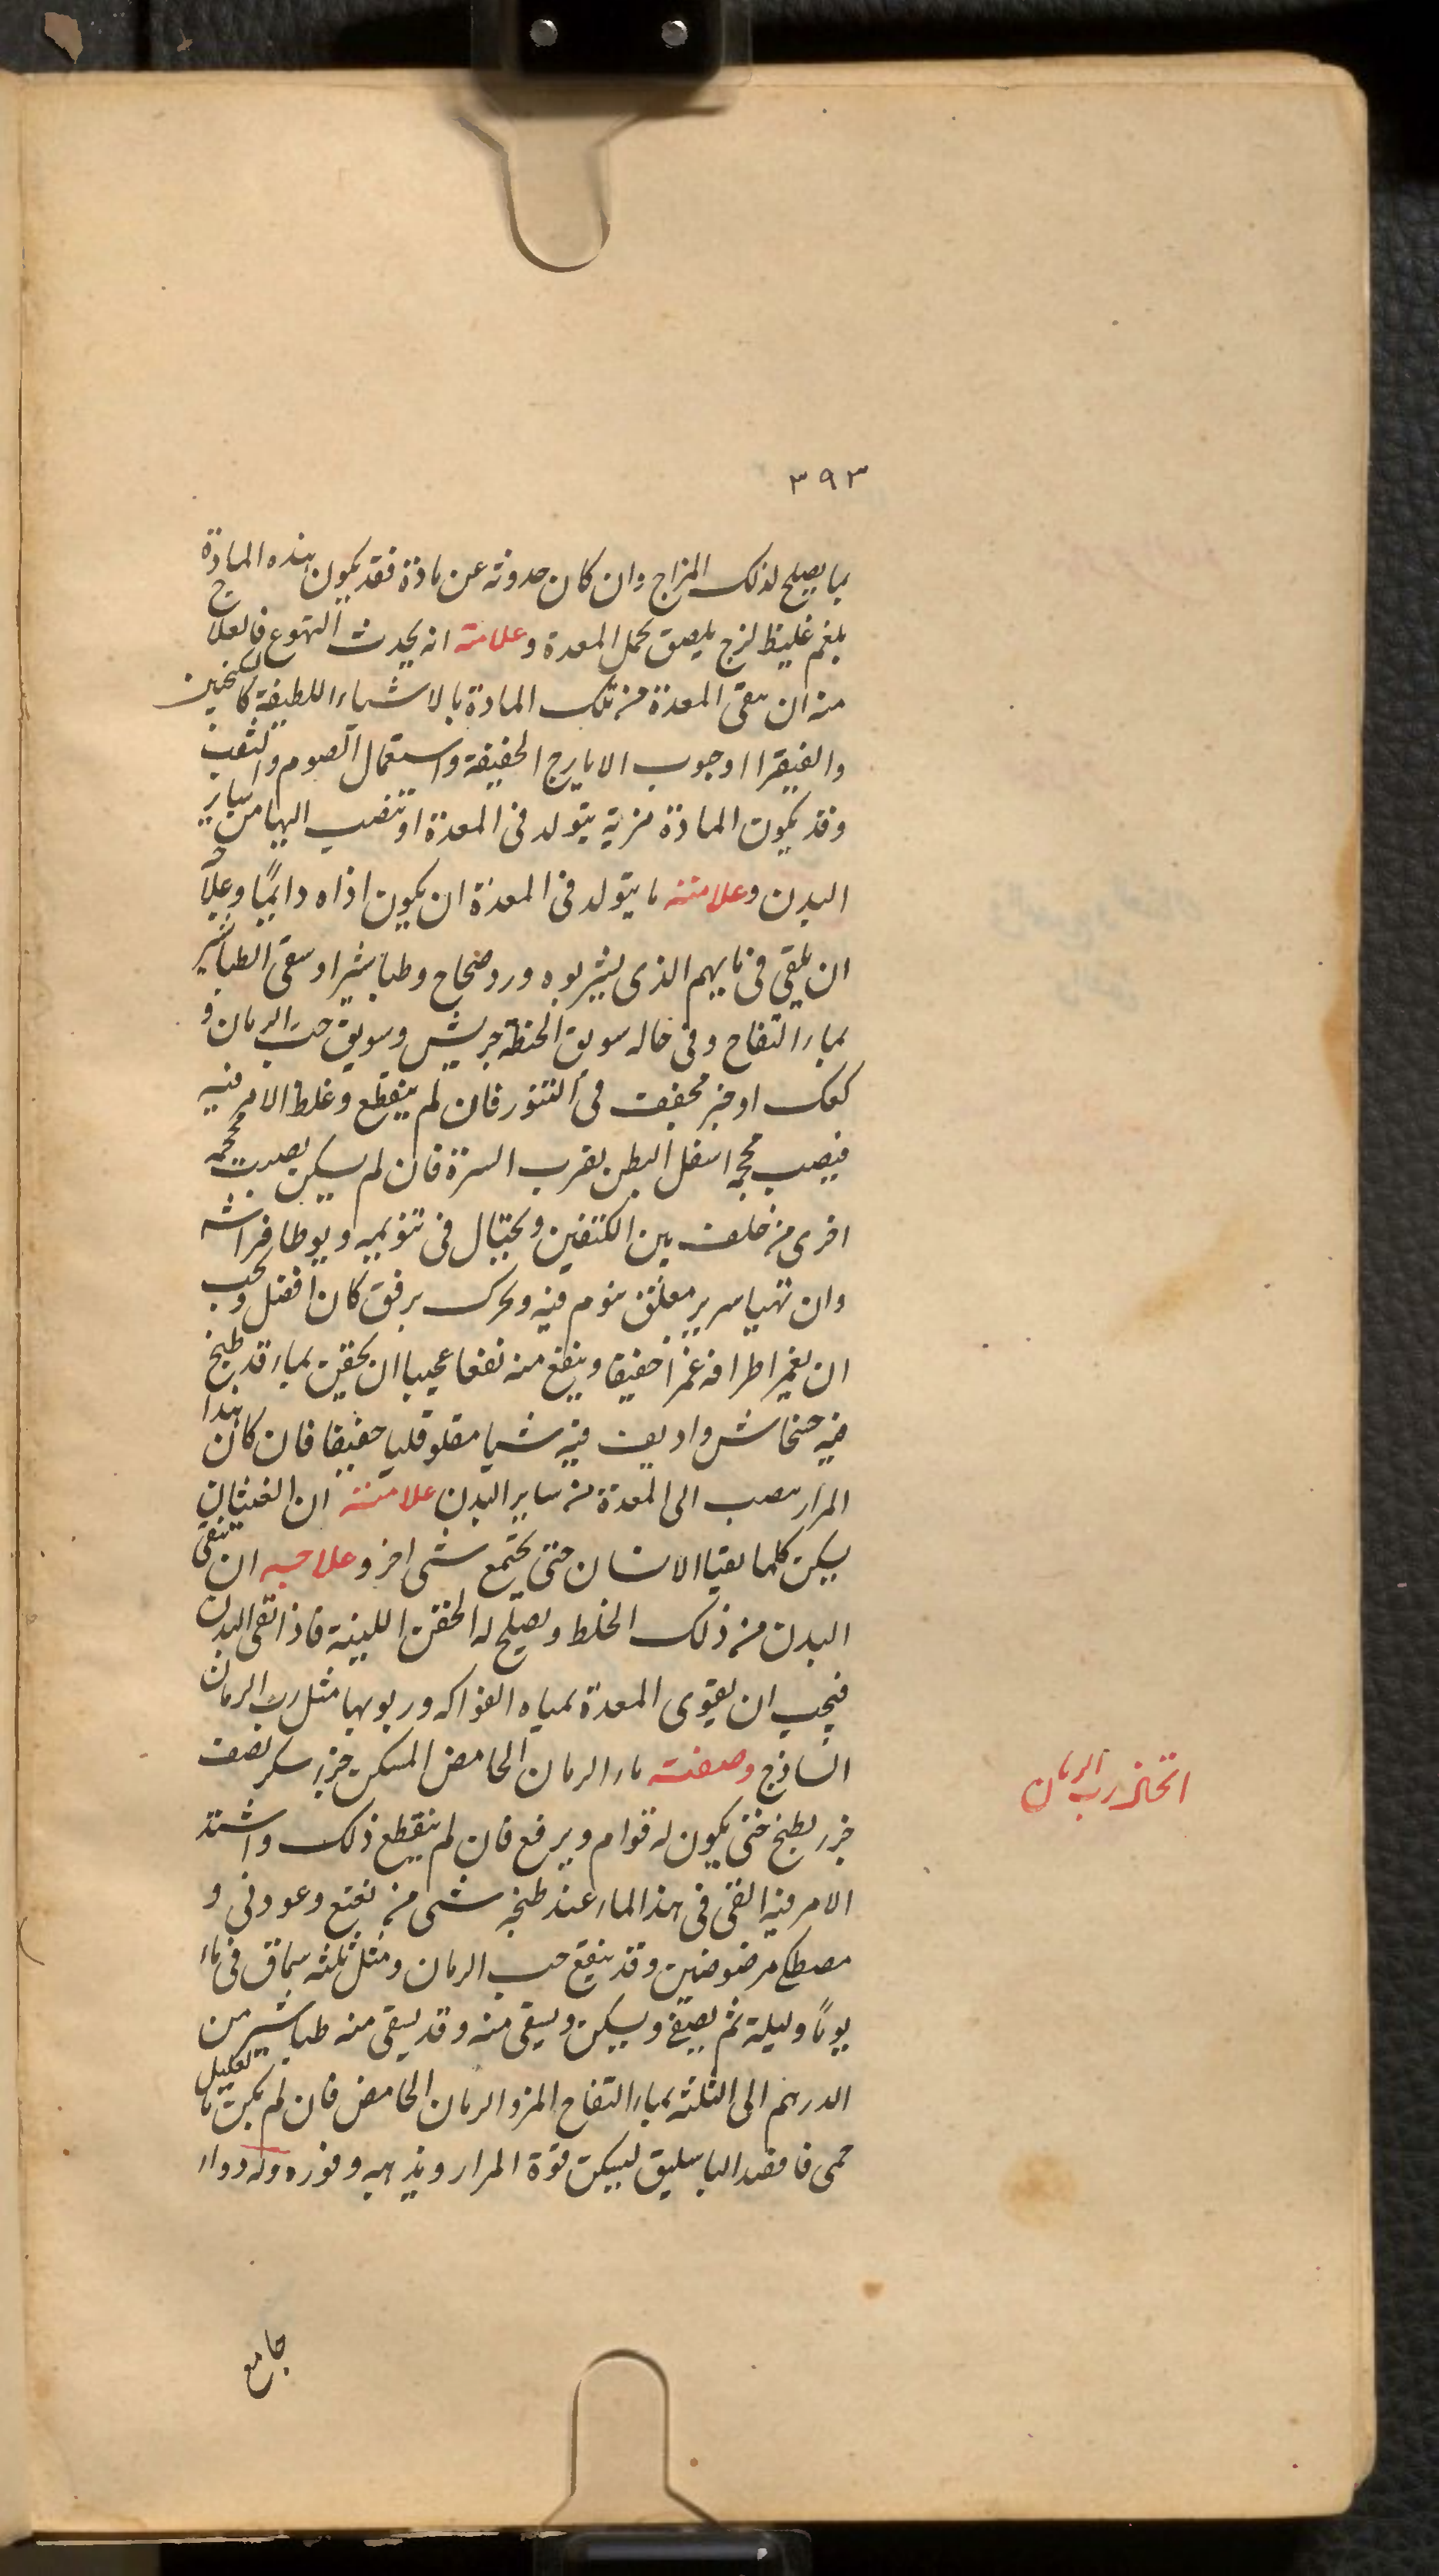 ٣٩٣
بما يصلح لذلك المزاج وان كان حدوثه عن مادة فقد يكون هذه المادة
بلغم غليظ لزج يلصق بخمل المعدة وعلامته انه يحدث التهوع فالعلاج
منه ان ينقى المعدة من تلك المادة بالاشياء اللطيفة كالسكنجبين
والفيقرا او حبوب الايارج الخفيفة واستعمال الصوم والتعب
وقد يكون المادة مرية يتولد في المعدة او تنصب اليها من ساير
البدن وعلامته ما يتولد في المعدة ان يكون اذاه دايمًا وعلاجه
ان يلقى في مايهم الذي يشربوه ورد صحاح وطباشير او سقى الطباشير
بماء التفاح وفي حاله سويق الحنطة جريش وسويق حب الرمان و
كعك او خبز مجفف في التنور فان لم ينقطع وغلظ الامر فيه
فينصب محجمه اسفل البطن بقرب السرة فان لم يسكن نصبت محجمه
اخرى من خلف بين الكتفين ويحتال في تنويمه ويوطا فراشه
وان تهيا سرير معلق ينوم فيه ويحرك برفق كان افضل ويجب
ان يغمز اطرافه غمزا خفيفا وينفع منه نفعا عجيبا ان يحقن بماء قد طبخ
فيه خشخاش واديف فيه شيا مقلو قليا خفيفا فان كان هذا
المرار ينصب الى المعدة من ساير البدن علامته ان الغثيان
يسكن كلما يقيا الانسان حتى يجتمع شى اخر وعلاجه ان ينقى
البدن من ذلك الخلط ويصلح له الحقن اللينة فاذا نقى البدن
فيجب ان يقوى المعدة بمياه الفواكه وربوبها مثل رب الرمان
الساذج وصفته ماء الرمان الحامض المسكن جزء سكر نصف
جزء يطبخ حتى يكون له قوام ويرفع فان لم ينقطع ذلك واشتد
الامر فيه القى في هذا الماء عند طبخه شى من نعنع وعود نى و
مصطكى مرضوضين وقد ينقع حب الرمان ومثل ثلثه سماق في ماء
يومًا وليلة ثم يصفى ويسكن ويسقى منه وقد يسقى منه طباشير من
الدرهم الى الثلثه بماء التفاح المز والرمان الحامض فان لم يكن بالعليل
حمى فافصد الباسليق ليسكن قوة المرار ويذهبه وفوره وله دواء
اتخاذ رب الرمان
جامع